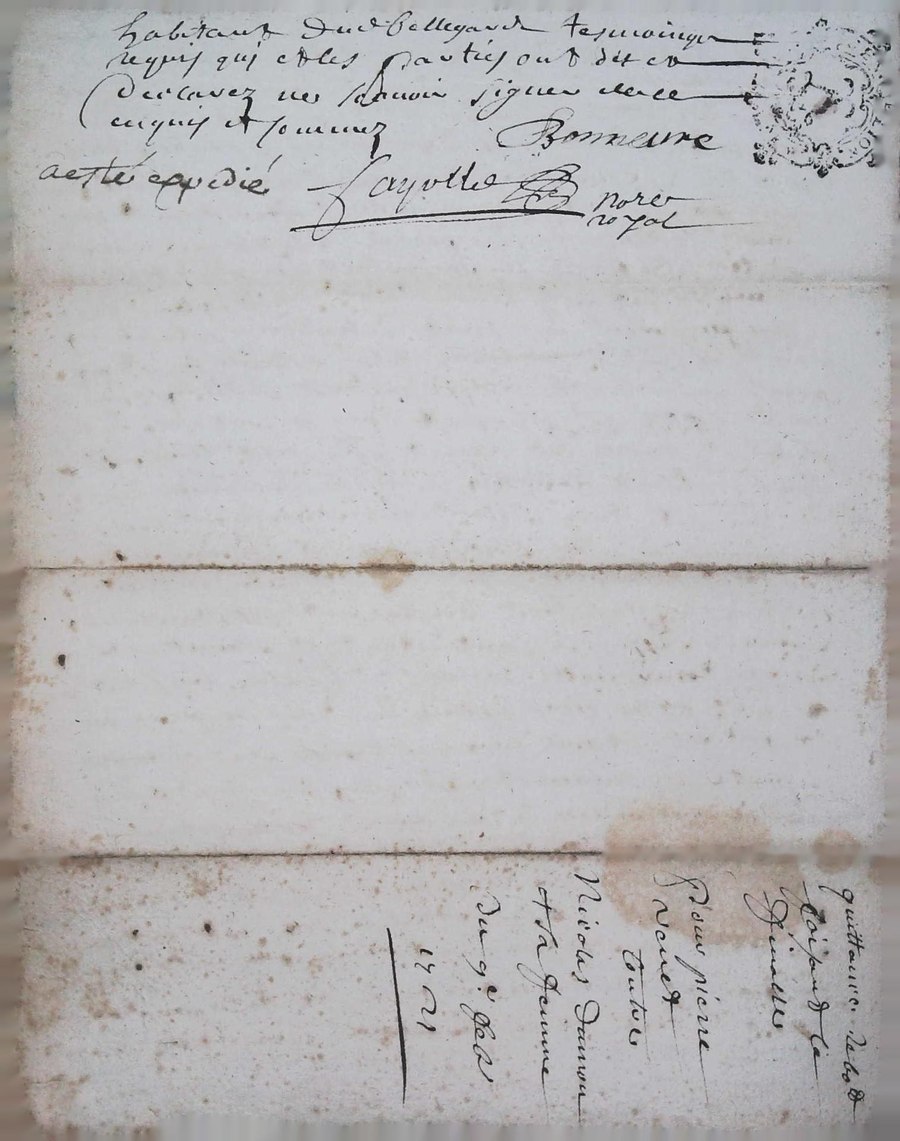 habitant dud bellegarde tesmoings
requis qui et les parties ont dit et
declarez ne scavoir signer de ce
enquis et sommez
Bonneure
a esté expedié
Fayolle
nore
royal
quittance de
la
finalle
pour pierre
venet
contre
Nicolas Dumon
et sa femme
du 9e feb
1721